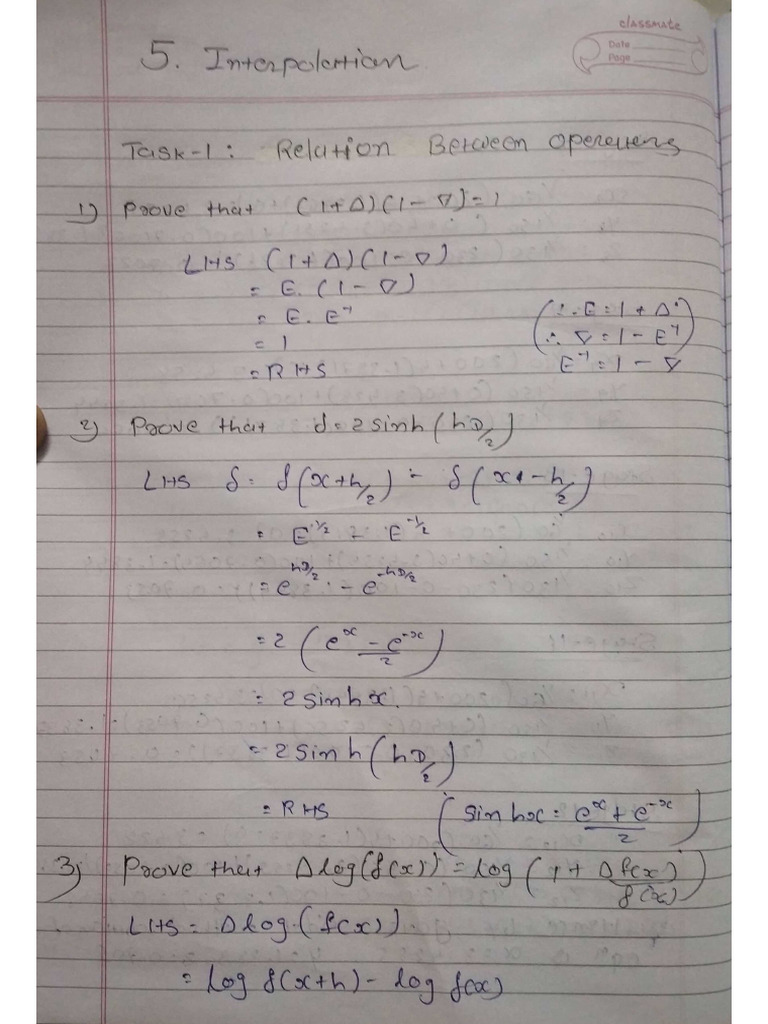 classmate
Date
Page
5. Interpolation
Task-1: Relation Between operators
1) Prove that (1+Δ)(1-∇)=1
LHS (1+Δ)(1-∇)
= E. (1-∇)
= E. E⁻¹
= 1
= RHS
(∵ E = 1 + Δ
∴ ∇ = 1 - E⁻¹)
E⁻¹ = 1 - ∇
2) Prove that δ = 2 sinh (hD/2)
LHS δ = f(x+h/2) - f(x-h/2)
= E^{1/2} - E^{-1/2}
= e^{hD/2} - e^{-hD/2}
= 2 ((e^x - e^{-x})/2)
= 2 sin hx.
= 2 sin h (hD/2)
= RHS
(sin hx = (e^x + e^{-x})/2)
3) Prove that Δ log(f(x)) = log (1 + Δf(x)/f(x))
LHS = Δ log (f(x)).
= log f(x+h) - log f(x)